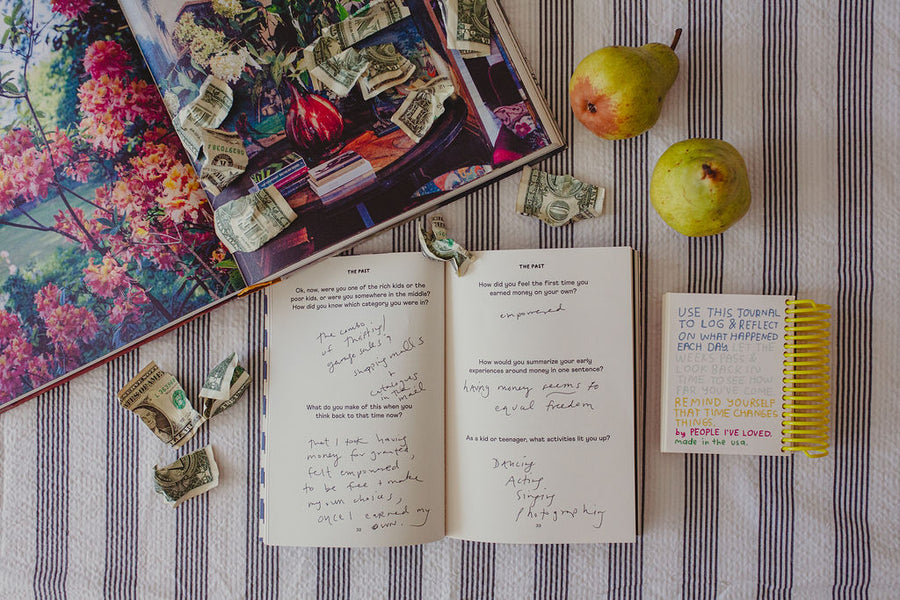 THE PAST
Ok, now, were you one of the rich kids or the
poor kids, or were you somewhere in the middle?
How did you know which category you were in?
The combo
of thrifting/
garage sales &
shopping malls
+
catalogues
in the
mail
What do you make of this when you
think back to that time now?
that I took having
money for granted,
felt empowered
to be free + make
my own choices,
once I earned my
own.
32
THE PAST
How did you feel the first time you
earned money on your own?
empowered
How would you summarize your early
experiences around money in one sentence?
having money seems to
equal freedom
As a kid or teenager, what activities lit you up?
Dancing
Acting
Singing
Photographing
33
USE THIS JOURNAL
TO LOG & REFLECT
ON WHAT HAPPENED
EACH DAY. LET THE
WEEKS PASS &
LOOK BACK IN
TIME TO SEE HOW
FAR YOU'VE COME.
REMIND YOURSELF
THAT TIME CHANGES
THINGS.
by PEOPLE I'VE LOVED.
made in the usa.